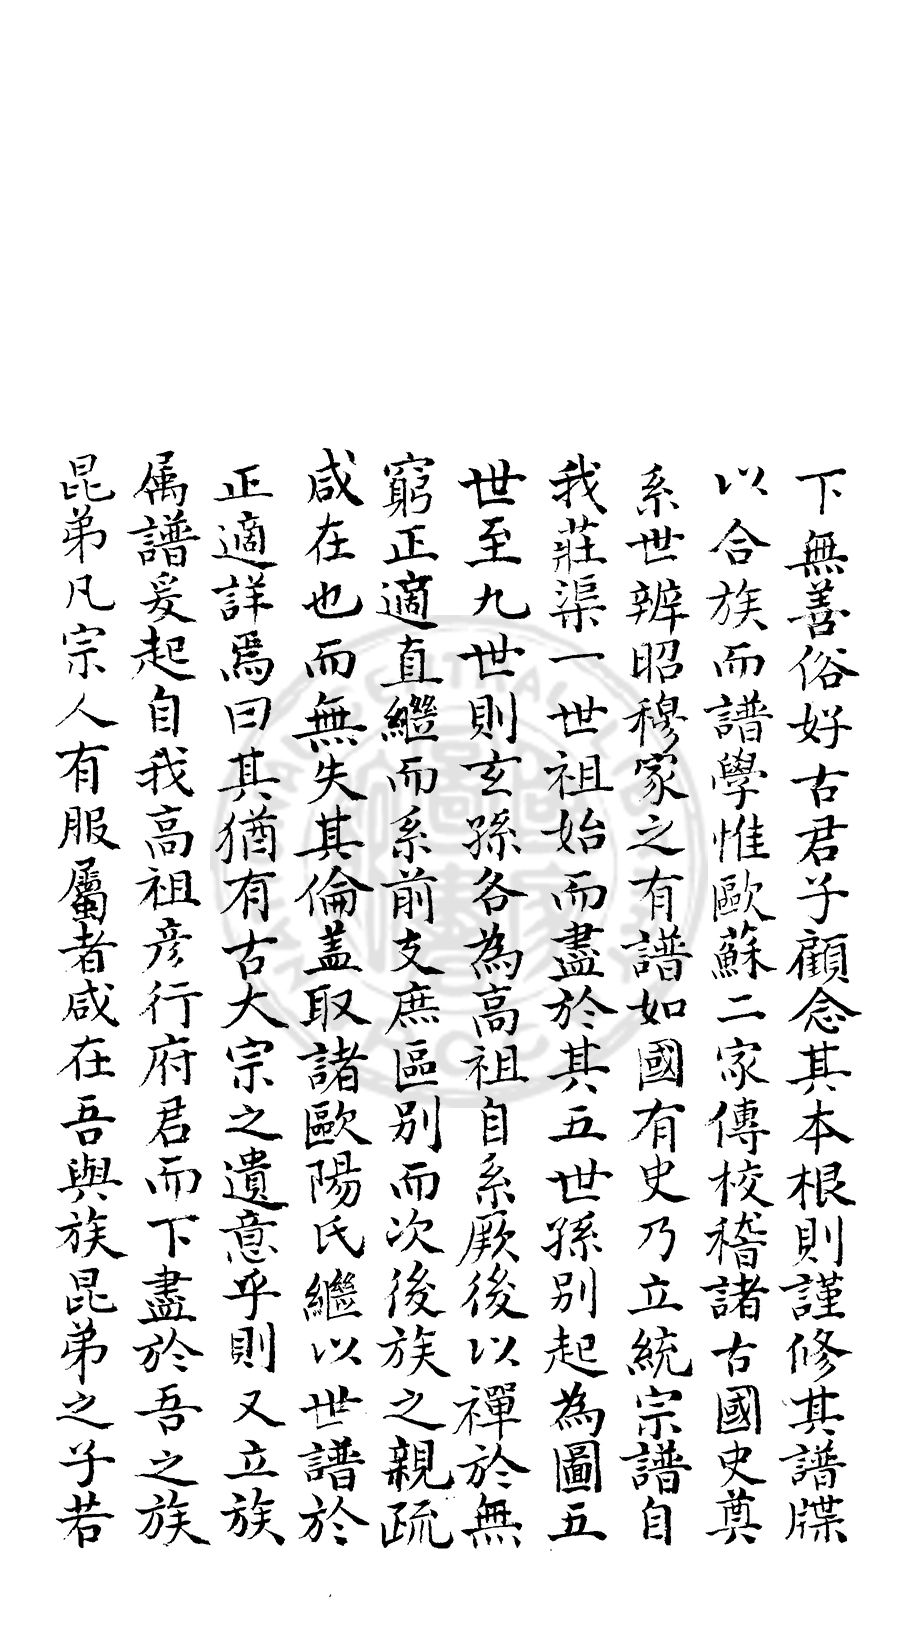 下無善俗好古君子顧念其本根則謹修其譜牒
以合族而譜學惟歐蘇二家傳校稽諸古國史奠
系世辨昭穆家之有譜如國有史乃立統宗譜自
我莊渠一世祖始而盡於其五世孫別起為圖五
世至九世則玄孫各為高祖自系厥後以禪於無
窮正適直繼而系前支庶區別而次後族之親疏
咸在也而無失其倫盖取諸歐陽氏繼以世譜於
正適詳焉曰其猶有古大宗之遺意乎則又立族
属譜爰起自我高祖彦行府君而下盡於吾之族
昆弟凡宗人有服屬者咸在吾與族昆弟之子若